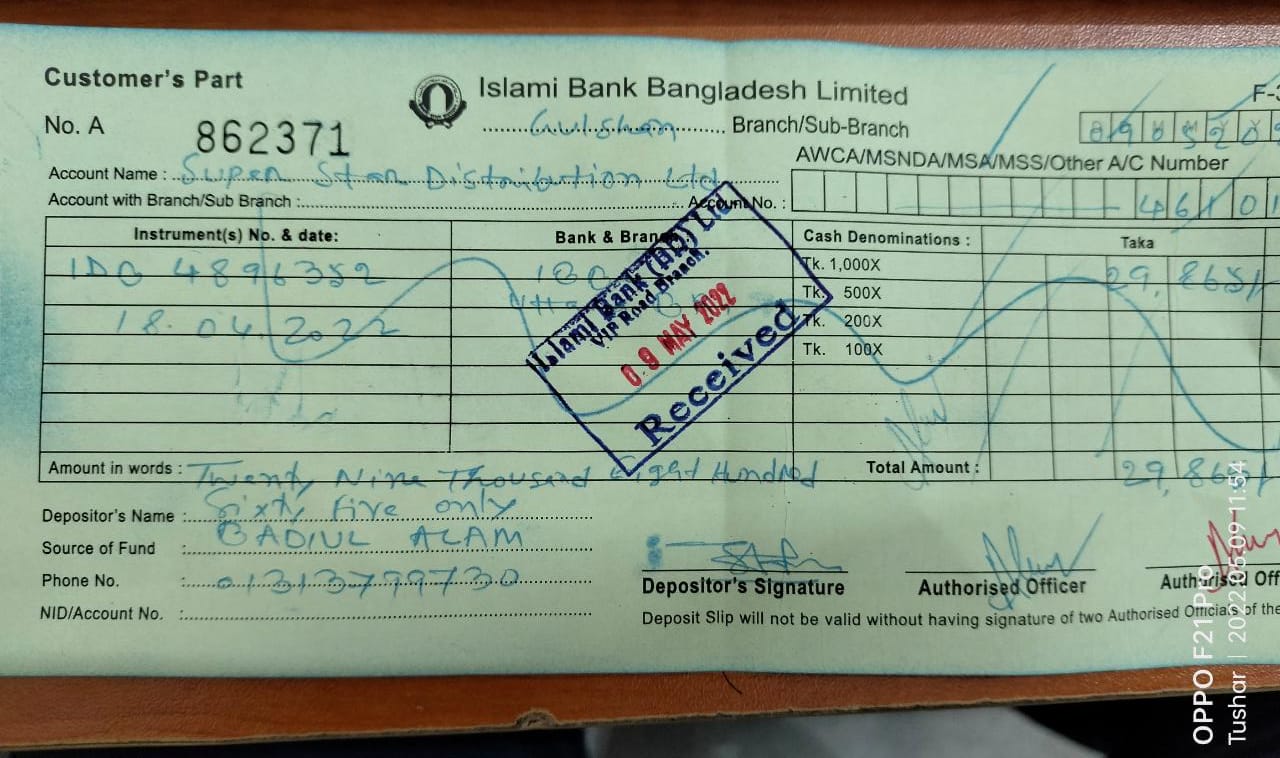 Customer's Part
Islami Bank Bangladesh Limited
F-
No. A 862371
Gulshan Branch/Sub-Branch
AWCA/MSNDA/MSA/MSS/Other A/C Number
Account Name : Super Star Distribution Ltd
Account with Branch/Sub Branch : Account No. :
Instrument(s) No. & date: Bank & Branch Cash Denominations : Taka
4896352
Tk. 1,000X 29,865/
Tk. 500X
18.04.2022
Tk. 200X
Tk. 100X
Islami Bank (BD) Ltd
VIP Road Branch.
09 MAY 2022
Received
Amount in words : Twenty Nine Thousand Eight Hundred
Total Amount : 29,865/
Sixty Five only
Depositor's Name :
BADIUL ALAM
Source of Fund :
Phone No. : 01313799730
NID/Account No. :
Depositor's Signature Authorised Officer Authorised Off
Deposit Slip will not be valid without having signature of two Authorised Officials of the
OPPO F21 Pro
Tushar | 2022.05.09 11:54